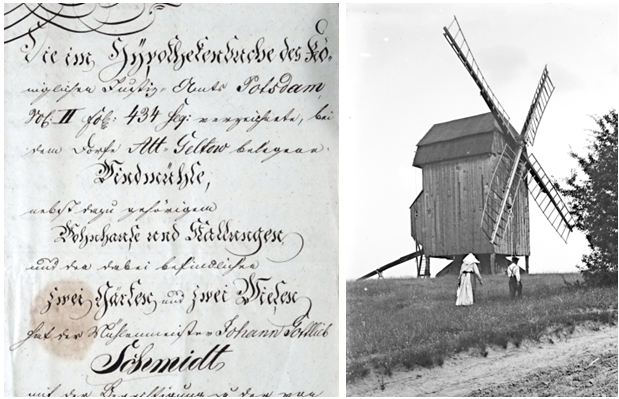 Die im Hÿpothekenbuche des Kö-
niglichen Justiz-Amts Potsdam
Vol: II fol: 434 seq: verzeichnete, bei
dem Dorfe Alt-Geltow belegene
Windmühle,
nebst dazu gehörigem
Wohnhause und Stallungen
und den dabei befindlichen
zwei Gärten und zwei Wiesen
hat der Mühlenmeister Johann Gottlieb
Schmidt
mit der Berechtigung u der von